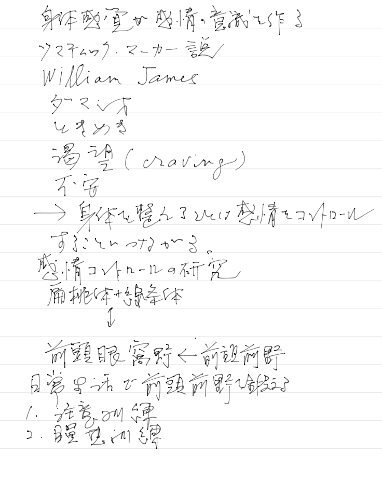 身体感覚が感情の意識を作る
ソマティック・マーカー説
William James
ダマシオ
ときめき
渇望(craving)
不安
→ 身体を整えることは感情をコントロール
することにつながる。
感情コントロールの研究
扁桃体+線条体
↓
前頭眼窩野←前頭前野
日常生活で前頭前野を鍛える
1. 注意訓練
2. 瞑想訓練